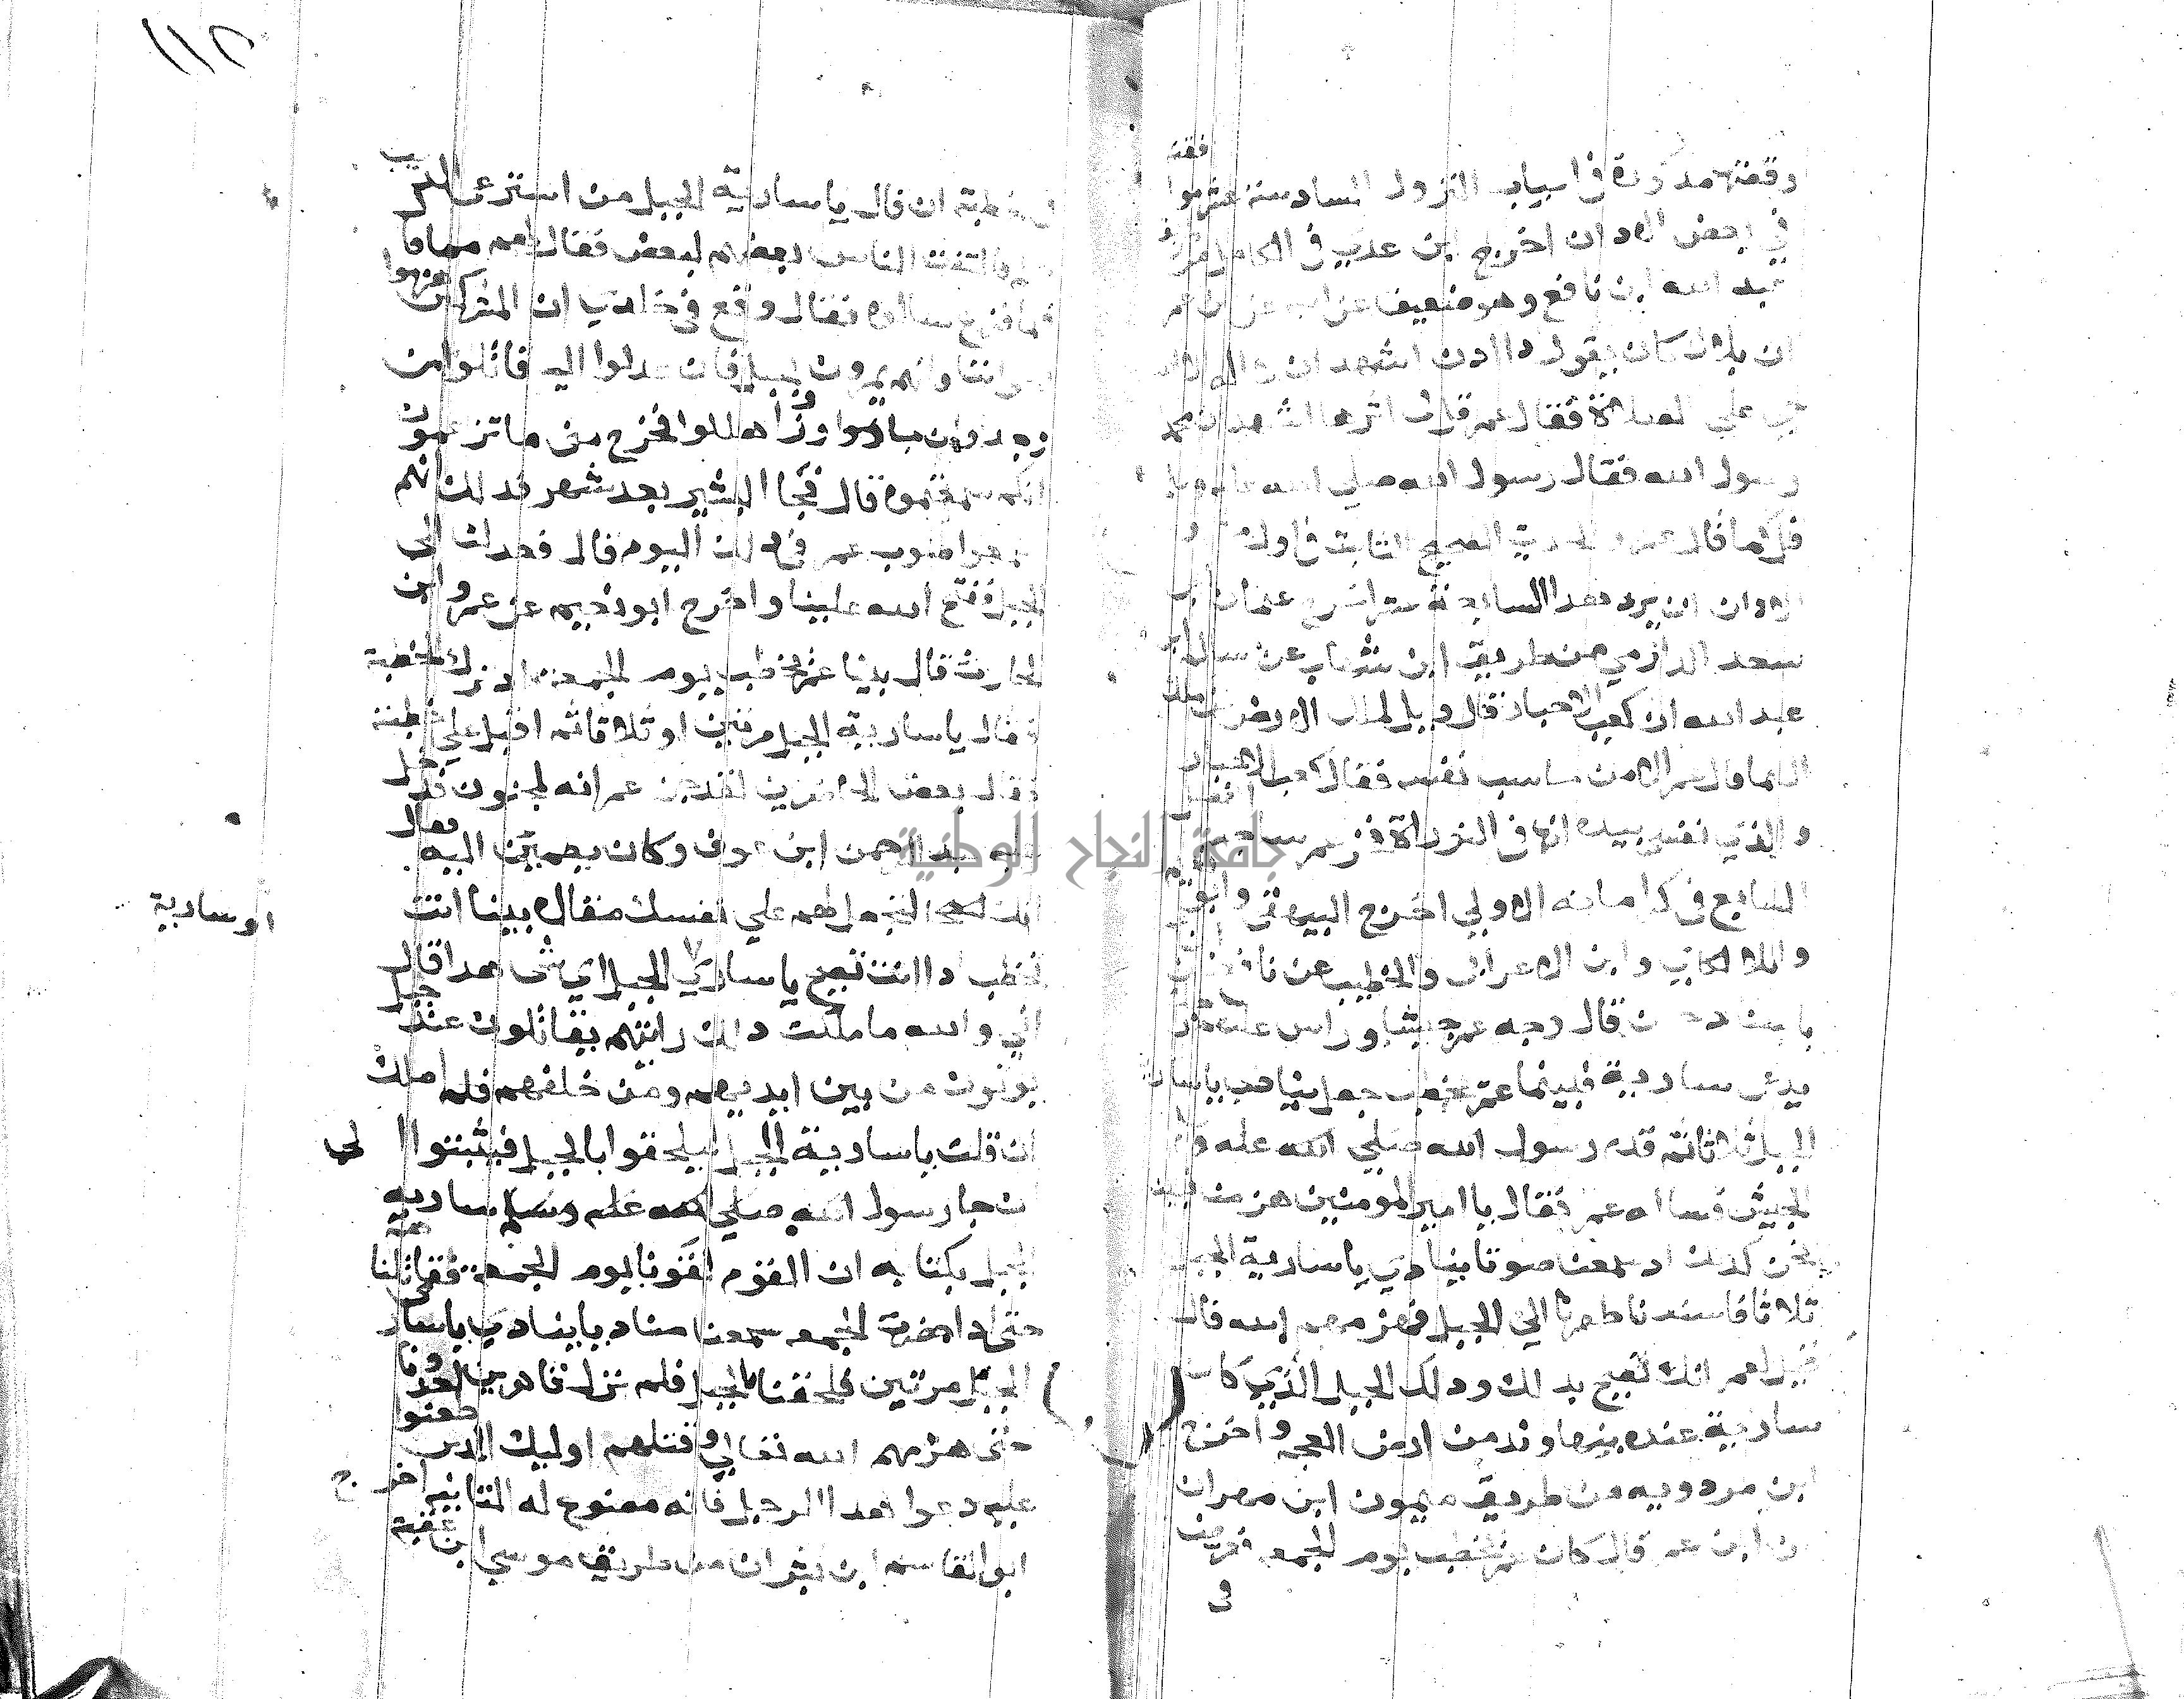 وقصتها مذكورة في اسباب النزول السادسة عشر موا
فقته
في بعض الاذان اخرج ابن عدي في الكامل من طريق
عبد الله ابن نافع وهو ضعيف عن ابيه عن ابن عمر
ان بلالا كان يقول اذا اذن اشهد ان لا اله الا الله
حي علي الصلاة فقال عمر قل في اثرها اشهد ان محمدا
رسول الله فقال رسول الله صلي الله عليه وسلم
قل كما قال عمر والحديث الصحيح الثابت في اول
الاذان يرد هذا السابعة عشر اخرج عثمان ابن
سعد الدارمي من طريق ابن شهاب عن سالم ابن
عبد الله ان كعب الاحبار قال ويل لملك الارض من ملك
السما قال عمر الا من حاسب نفسه فقال كعب الاحبار
والذي نفسي بيده انها في التوراة فخر عمر ساجدا
السابع في كراماته الاولي اخرج البيهقي وابو نعيم
واللالكائي وابن الاعرابي والخطيب عن نافع عن
قال وجه عمر جيشا وراس عليهم رجلا
يدعي سارية فبينما عمر يخطب جعل ينادي يا سارية
الجبل ثلاثا ثم قدم رسول الله صلي الله عليه وسلم
الجيش فساله عمر فقال يا امير المومنين هزمنا فبينا
نحن كذلك اذ سمعنا صوتا ينادي يا سارية الجبل
ثلاثا فاسندنا ظهرنا الي الجبل فهزمهم الله قال
قيل لعمر انك تصيح بذلك وذلك الجبل الذي كان
سارية عنده بنهاوند من ارض العجم واخرج
ابن مردويه من طريق ميمون ابن مهران
عن ابن عمر قال كان عمر يخطب يوم الجمعة فعرض
في
١١٢
في خطبته ان قال يا سارية الجبل من استرعي الذيب
ظلم فالتفت الناس بعضهم لبعض فقال لهم مما قال
فلما فرغ سالوه فقال وقع في خلدي ان المشركين هزموا
اخواننا وانهم يمرون بجبل فان عدلوا اليه قاتلوا من
وجدوا وان جاوزوا هلكوا فخرج مني ما تزعمون
انكم سمعتموه قال فجا البشير بعد شهر فذكر انهم
سمعوا صوت عمر في ذلك اليوم قال فعدلنا الي
الجبل ففتح الله علينا واخرج ابو نعيم عن عمرو ابن
الحارث قال بينا عمر يخطب يوم الجمعة اذ ترك الخطبة
فقال يا سارية الجبل مرتين او ثلاثا ثم اقبل علي خطبته
فقال بعض الحاضرين لقد جن عمر انه لمجنون فدخل
عليه عبد الرحمن ابن عوف وكان يطمين اليه فقال
انك لتجعل لهم علي نفسك مقالا بينا انت
تخطب اذا انت تصيح يا سارية الجبل اي شي هذا قال
اني والله ما ملكت ذلك رايتهم يقاتلون عند جبل
يوتون من بين ايديهم ومن خلفهم فلم املك
ان قلت يا سارية الجبل ليلحقوا بالجبل فلبثوا الي
او سارية
ان جا رسول الله صلي الله عليه وسلم سارية
بكتابه ان القوم لقونا يوم الجمعة فقاتلنا
حتي اذا حضرت الجمعة سمعنا مناديا ينادي يا سارية
الجبل مرتين فلحقنا بالجبل فلم نزل قاهرين لعدونا
حتي هزمهم الله تعالي وقتلهم اوليك الذين طعنوا
عليه دعوا هذا الرجل فانه مصنوع له الثانية اخرج
ابو القاسم ابن بشران من طريق موسي ابن عقبة
جامعة النجاح الوطنية